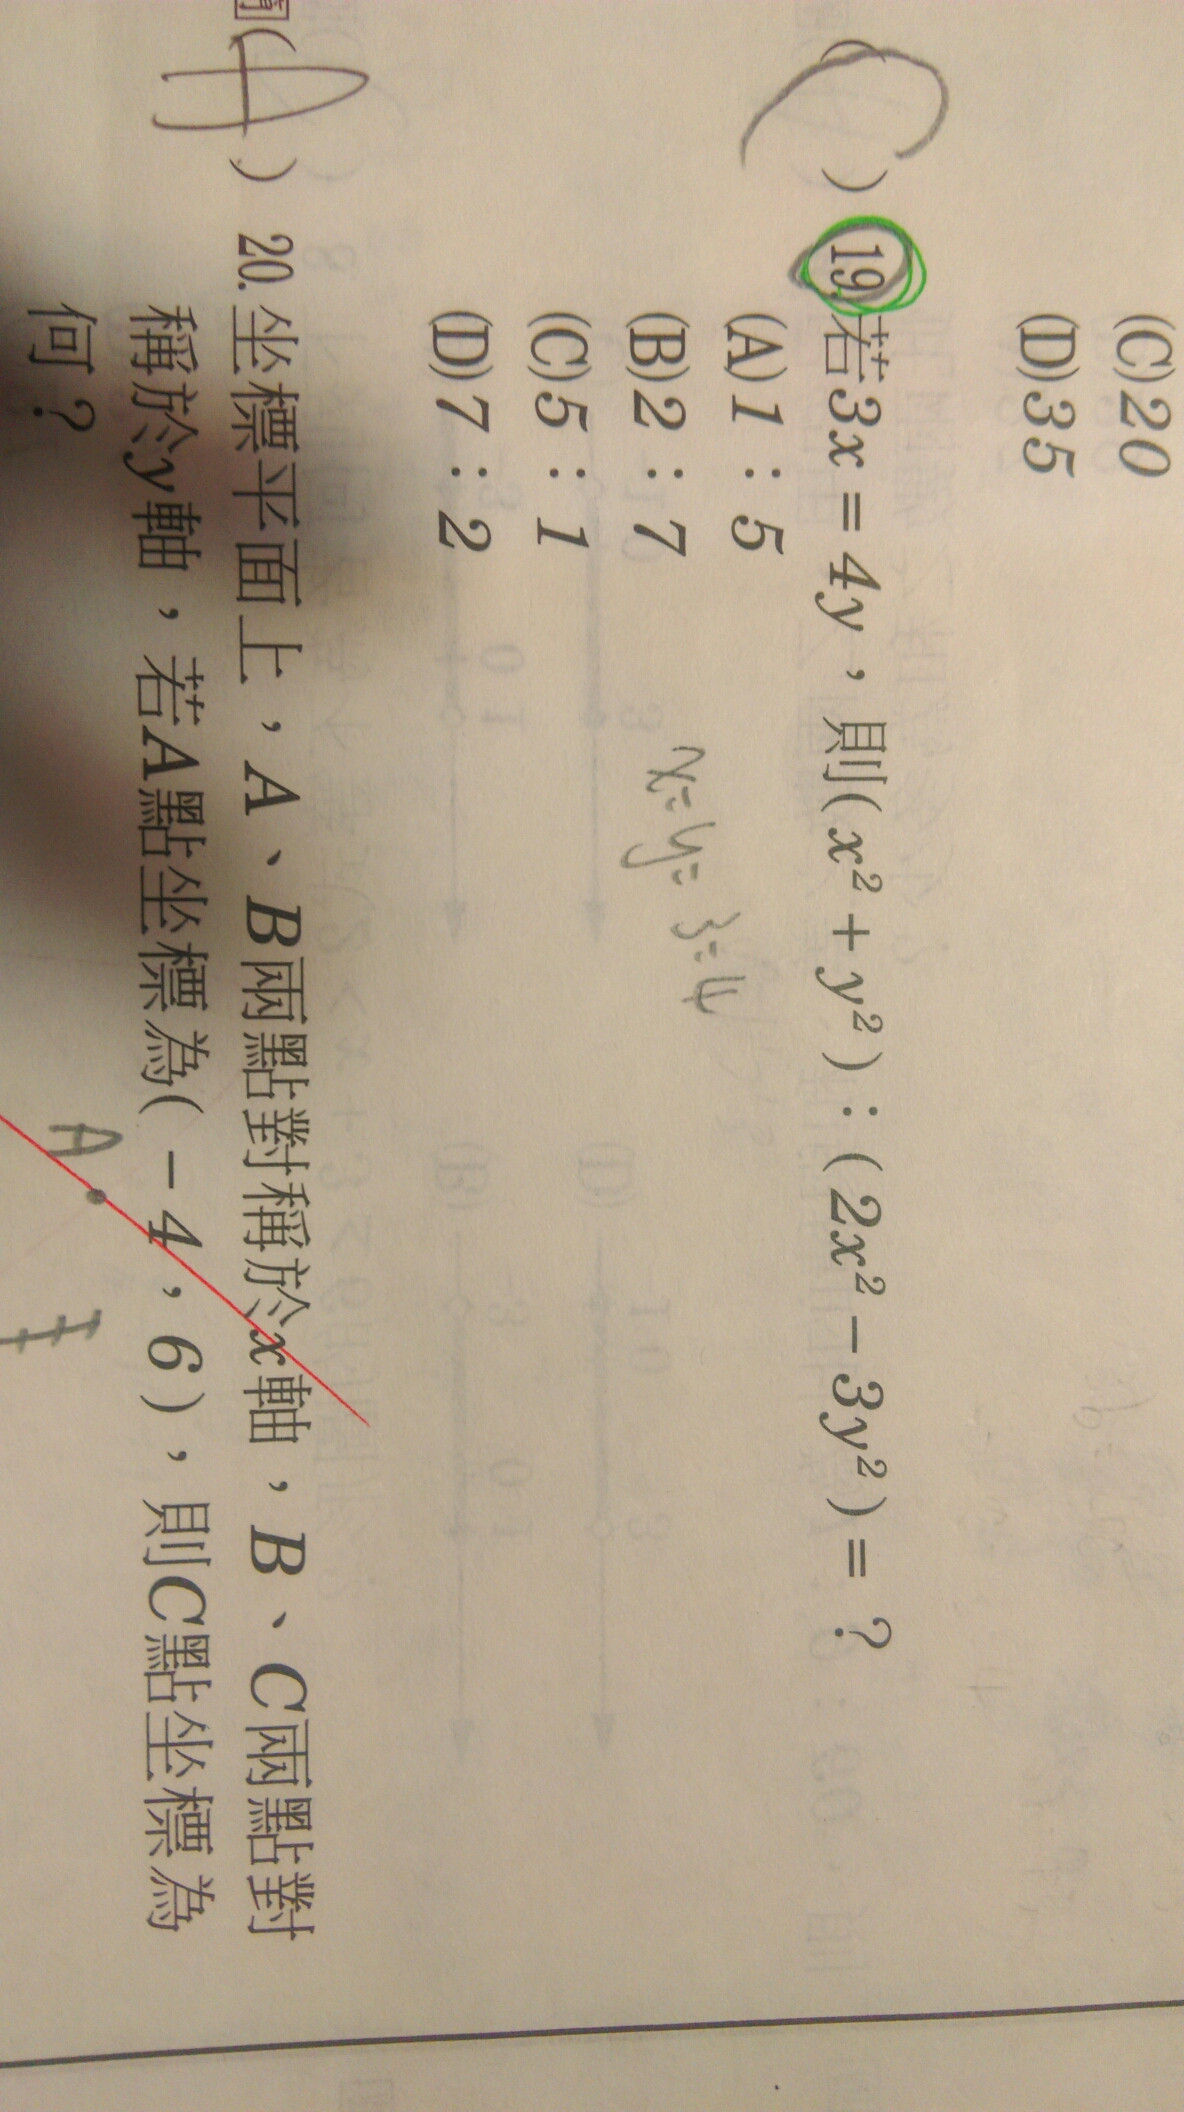 (C)20
(D)35
(C) 19.若3x=4y，則(x²+y²)：(2x²-3y²)=？
(A)1：5
(B)2：7
(C)5：1
(D)7：2
x=y=3=4
(A) 20.坐標平面上，A、B兩點對稱於x軸，B、C兩點對
稱於y軸，若A點坐標為(-4，6)，則C點坐標為
何？
A